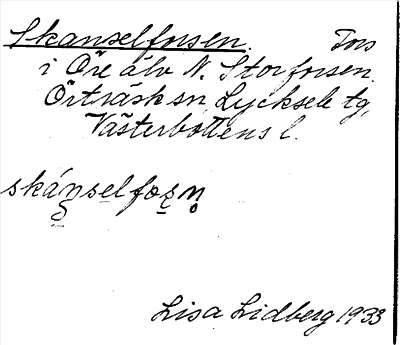 Skanselforsen. Fors
i Öre älv N. Storforsen.
Örträsk sn, Lycksele tg,
Västerbottens l.
Lisa Lidberg 1933